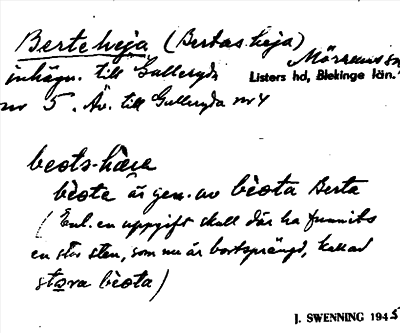 Berteheja (Bertas heja)
Mörrums sn
inhägn. till Gulleryda Listers hd, Blekinge län.
nr 5. Äv. till Gulleryda nr 4
beots-hæia
bèota är gen. av bèota Berta
(Enl. en uppgift skall där ha funnits
en stor sten, som nu är bortsprängd, kallad
stora bèota)
J. SWENNING 1945